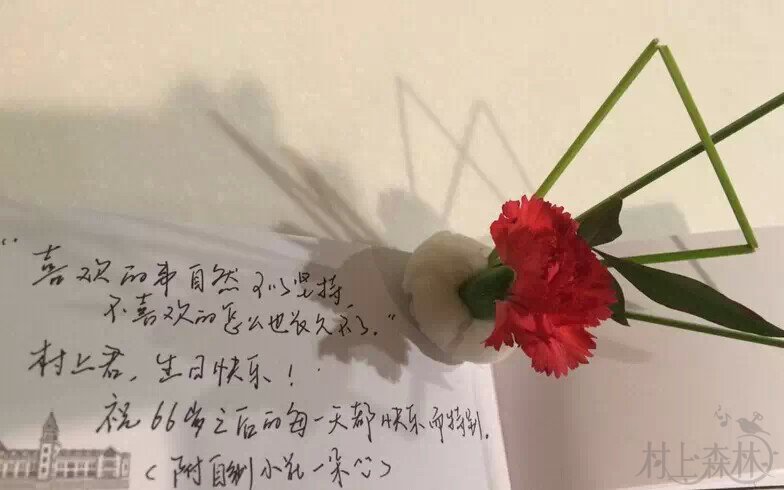 “喜欢的事自然可以坚持,
不喜欢的怎么也长久不了.”
村上君,生日快乐!
祝66岁之后的每一天都快乐而特别.
(附自制小花一朵^^)
村上森林